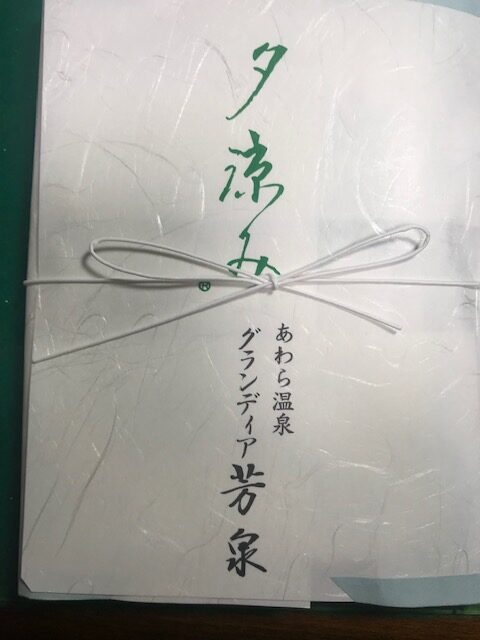 夕涼み®
あわら温泉
グランディア芳泉